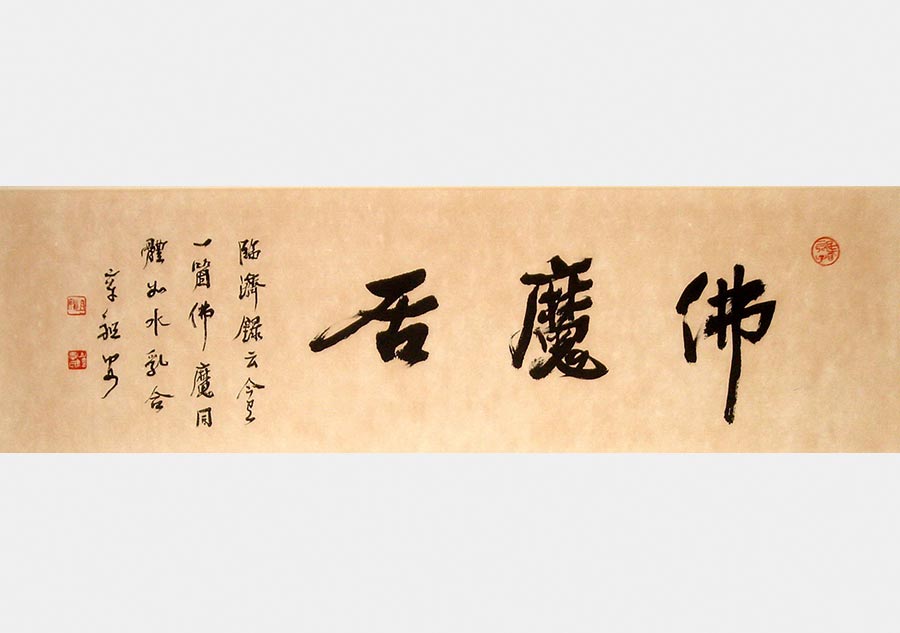 佛魔居
臨濟錄云今有
一箇佛魔同
體如水乳合
章祖安